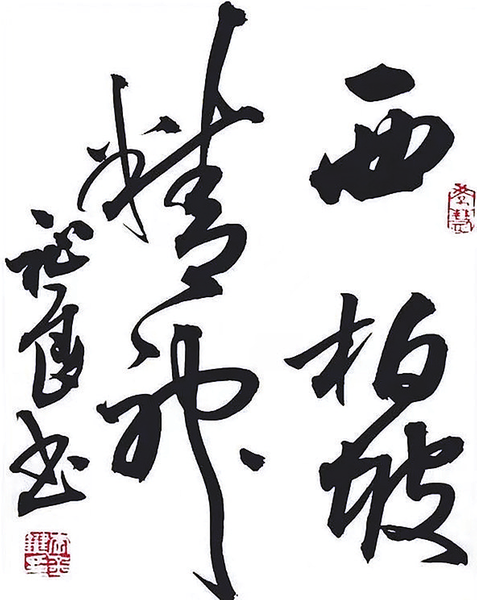 西柏坡
精神